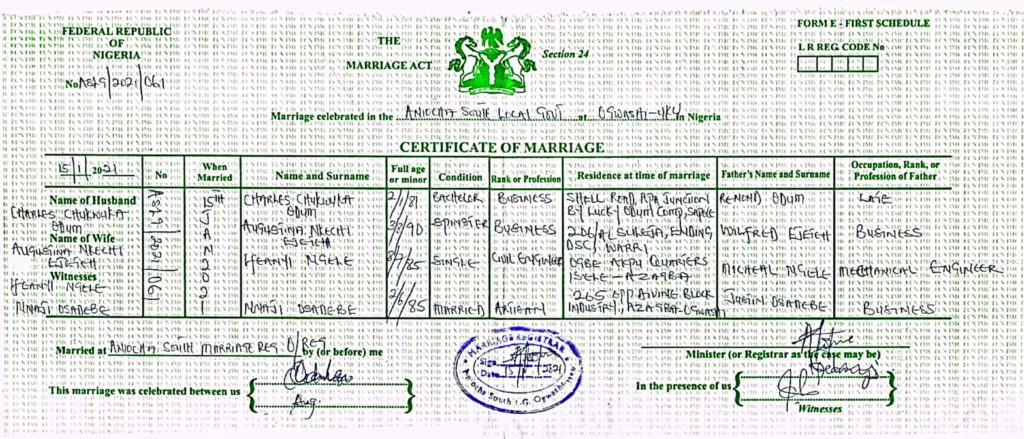 FEDERAL REPUBLIC
OF
NIGERIA
No AS49/2021/061
THE
MARRIAGE ACT
Section 24
FORM E - FIRST SCHEDULE
L R REG. CODE No
Marriage celebrated in the ANIOCHA SOUTH LOCAL GOVT at OGWASHI-UKU in Nigeria
CERTIFICATE OF MARRIAGE
15/1/2021 No When Married Name and Surname Full age or minor Condition Rank or Profession Residence at time of marriage Father's Name and Surname Occupation, Rank, or Profession of Father
Name of Husband
CHARLES CHUKWUKA ODUM
2021/061
15TH JAN 2021
CHARLES CHUKWUKA ODUM 2/1/81 BACHELOR BUSINESS SHELL ROAD, JUNCTION BY LUCKY ODUM COMP, ODUM LATE
Name of Wife
AUGUSTINA NKECHI EJEICH
AUGUSTINA NKECHI EJEICH 3/8/90 SPINSTER BUSINESS ENDING DSC/ WARRI WILFRED EJEICH BUSINESS
Witnesses
IFEANYI NGELE
IFEANYI NGELE /85 SINGLE CIVIL ENGINEER OGBE AKPU QUARTERS ISELE-AZAGBA MICHEAL NGELE MECHANICAL ENGINEER
NNAJI OSADEBE
NNAJI OSADEBE 2/6/85 MARRIED ARTISAN 265 OPP DIVINE BLOCK INDUSTRY, AZAGBA-OGWASHI JUSTIN OSADEBE BUSINESS
Married at ANIOCHA SOUTH MARRIAGE REG O/REG by (or before) me
Minister (or Registrar as the case may be)
This marriage was celebrated between us
In the presence of us
Witnesses
MARRIAGE REGISTRAR
Sign
Date 15/1/2021
Aniocha South L.G. Ogwashi-Uku